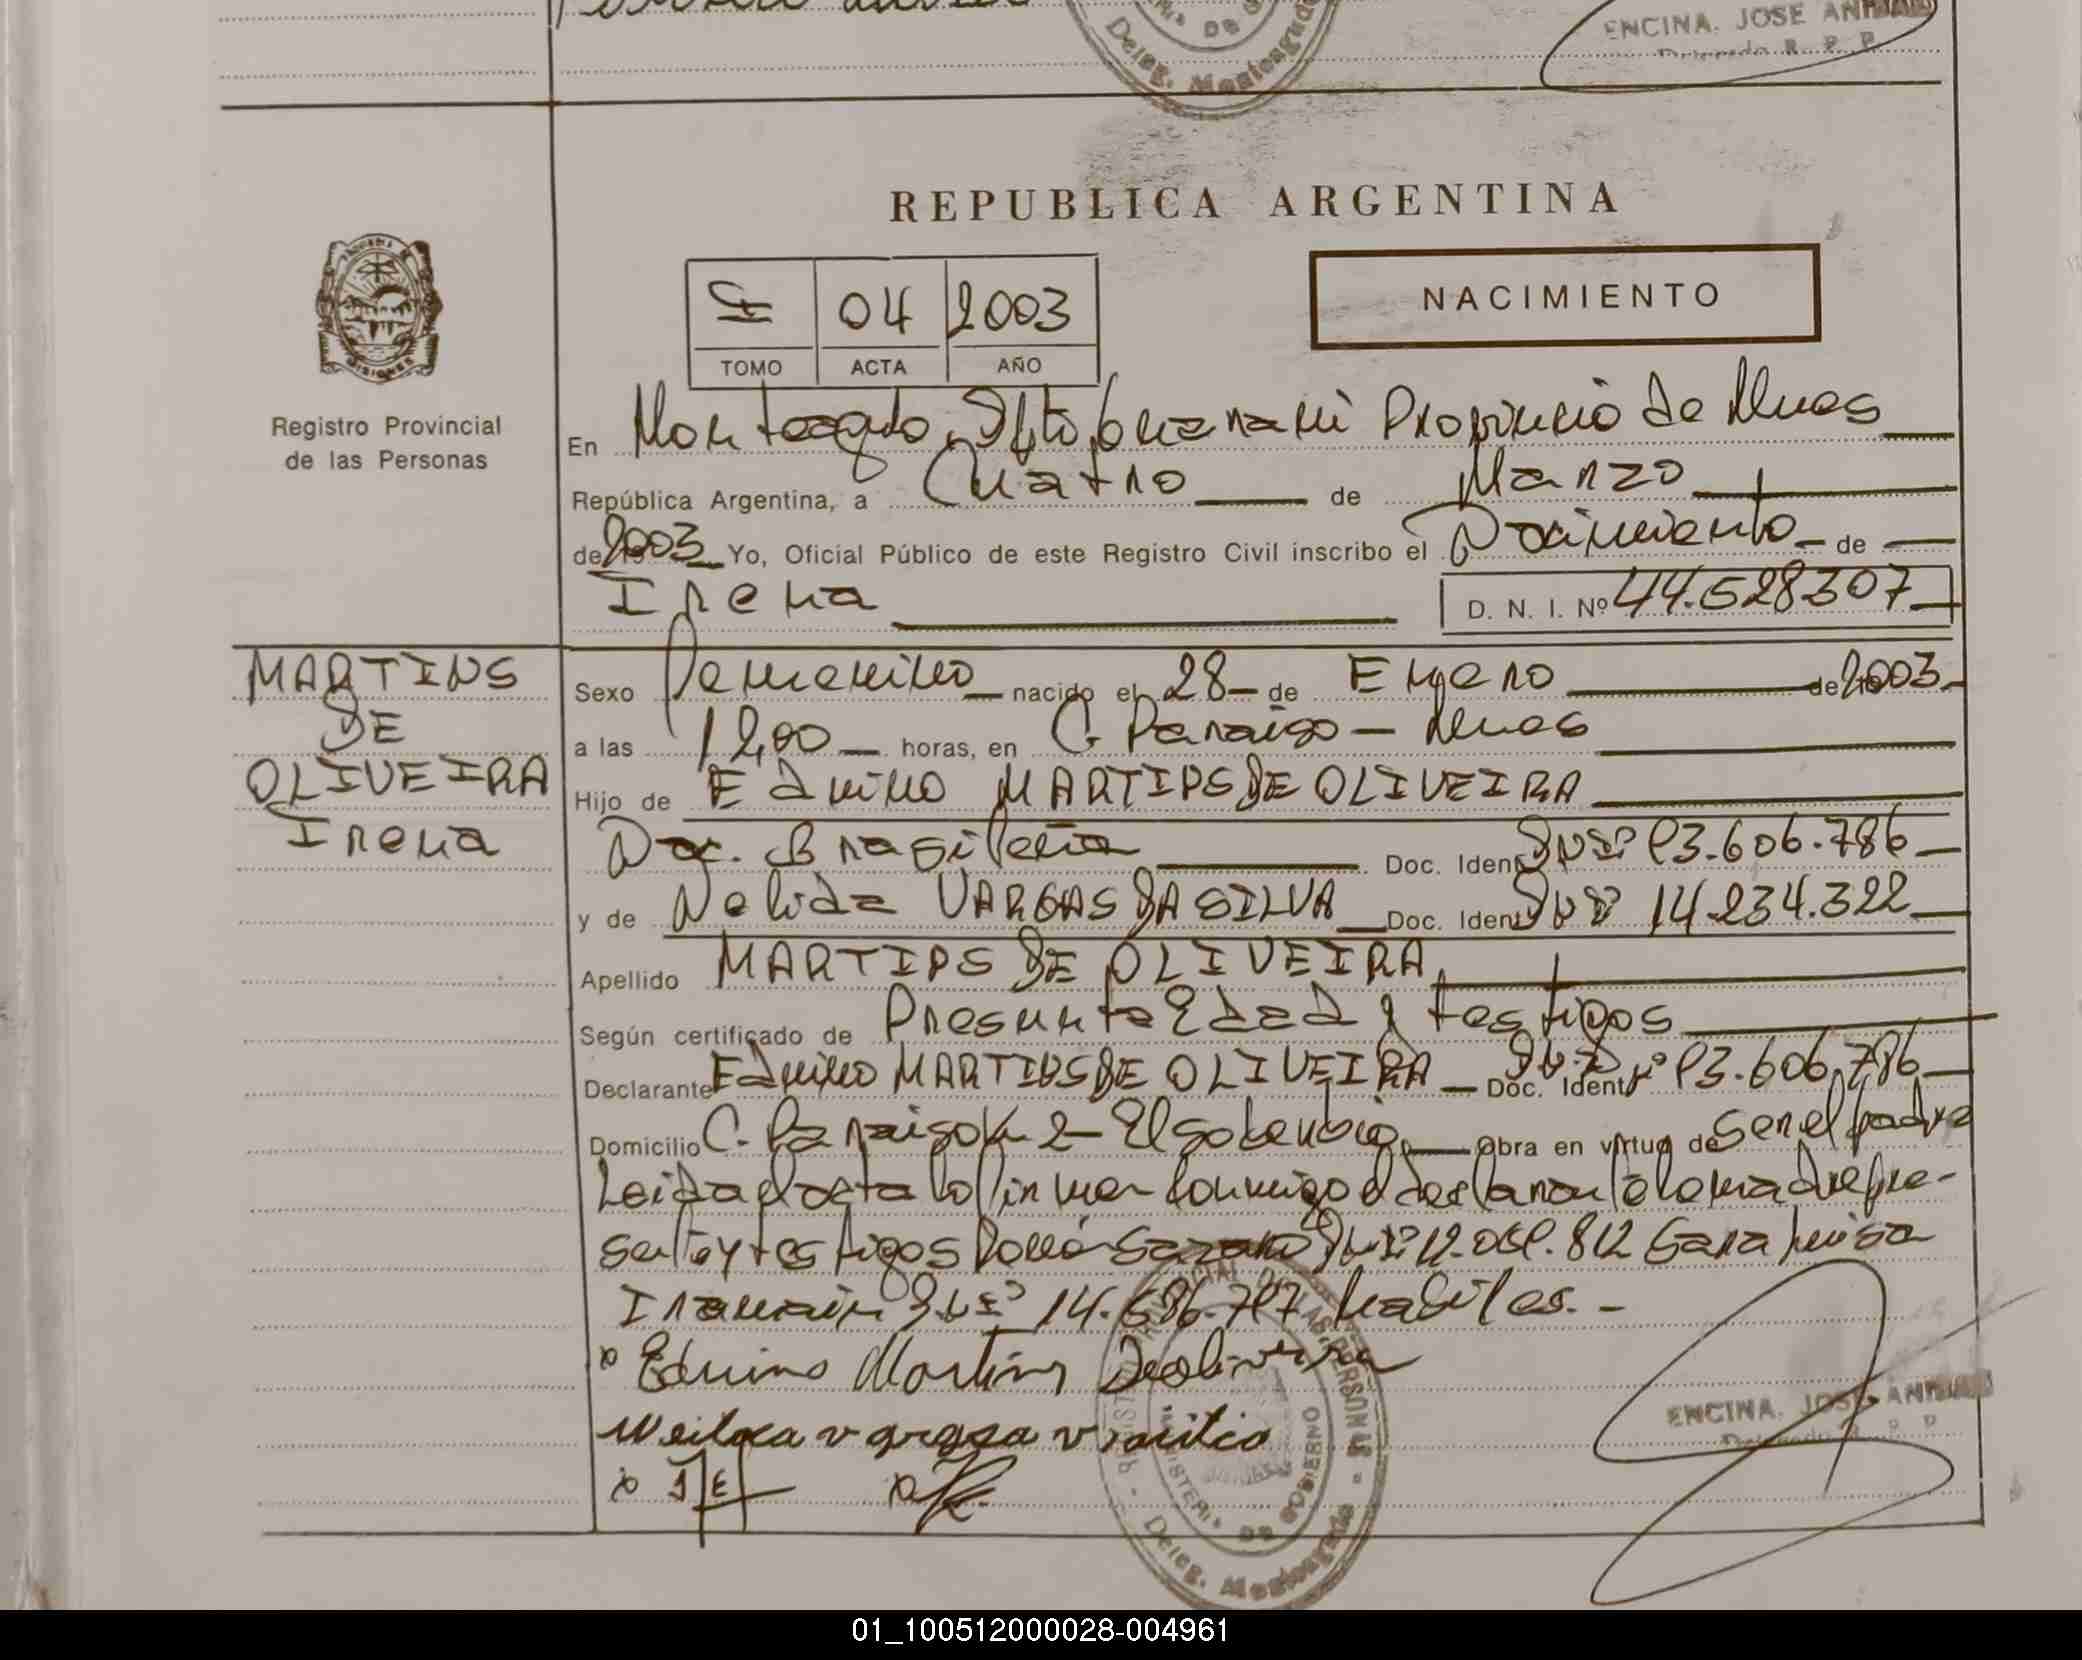 ENCINA. JOSE ANIBAL
Deleg. Monteagudo
REPUBLICA ARGENTINA
NACIMIENTO
04 2003
TOMO ACTA AÑO
MISIONES
Registro Provincial
de las Personas
En Monteagudo, Dpto Guarani Provincia de Mnes
República Argentina, a Cuatro de Marzo
de 2003 Yo, Oficial Público de este Registro Civil inscribo el Nacimiento de
Irena D. N. I. Nº 44.528307
MARTINS
DE
OLIVEIRA
Irena
Sexo Femenino nacido el 28 de Enero de 2003
a las 12,00 horas, en C. Paraiso - Mnes
Hijo de Eduino MARTINS DE OLIVEIRA
Nac. Brasileña Doc. Ident. DNIº 93.606.786
y de Nelida VARGAS DA SILVA Doc. Ident. DNIº 14.234.322
Apellido MARTINS DE OLIVEIRA
Según certificado de Presunta Edad y testigos
Declarante Eduino MARTINS DE OLIVEIRA Doc. Ident. Nº 93.606.786
Domicilio C. Paraiso Km 2 - El soberbio Obra en virtud de ser el padre
Leida el acta lo firman conmigo el declarante la madre pre-
sente y testigos 812 Sara Luisa
DNIº 14. habiles. -
Eduino Martins Deoliveira
ENCINA. JOSE ANIBAL
MINISTERIO DE GOBIERNO
Deleg. Monteagudo
01_100512000028-004961